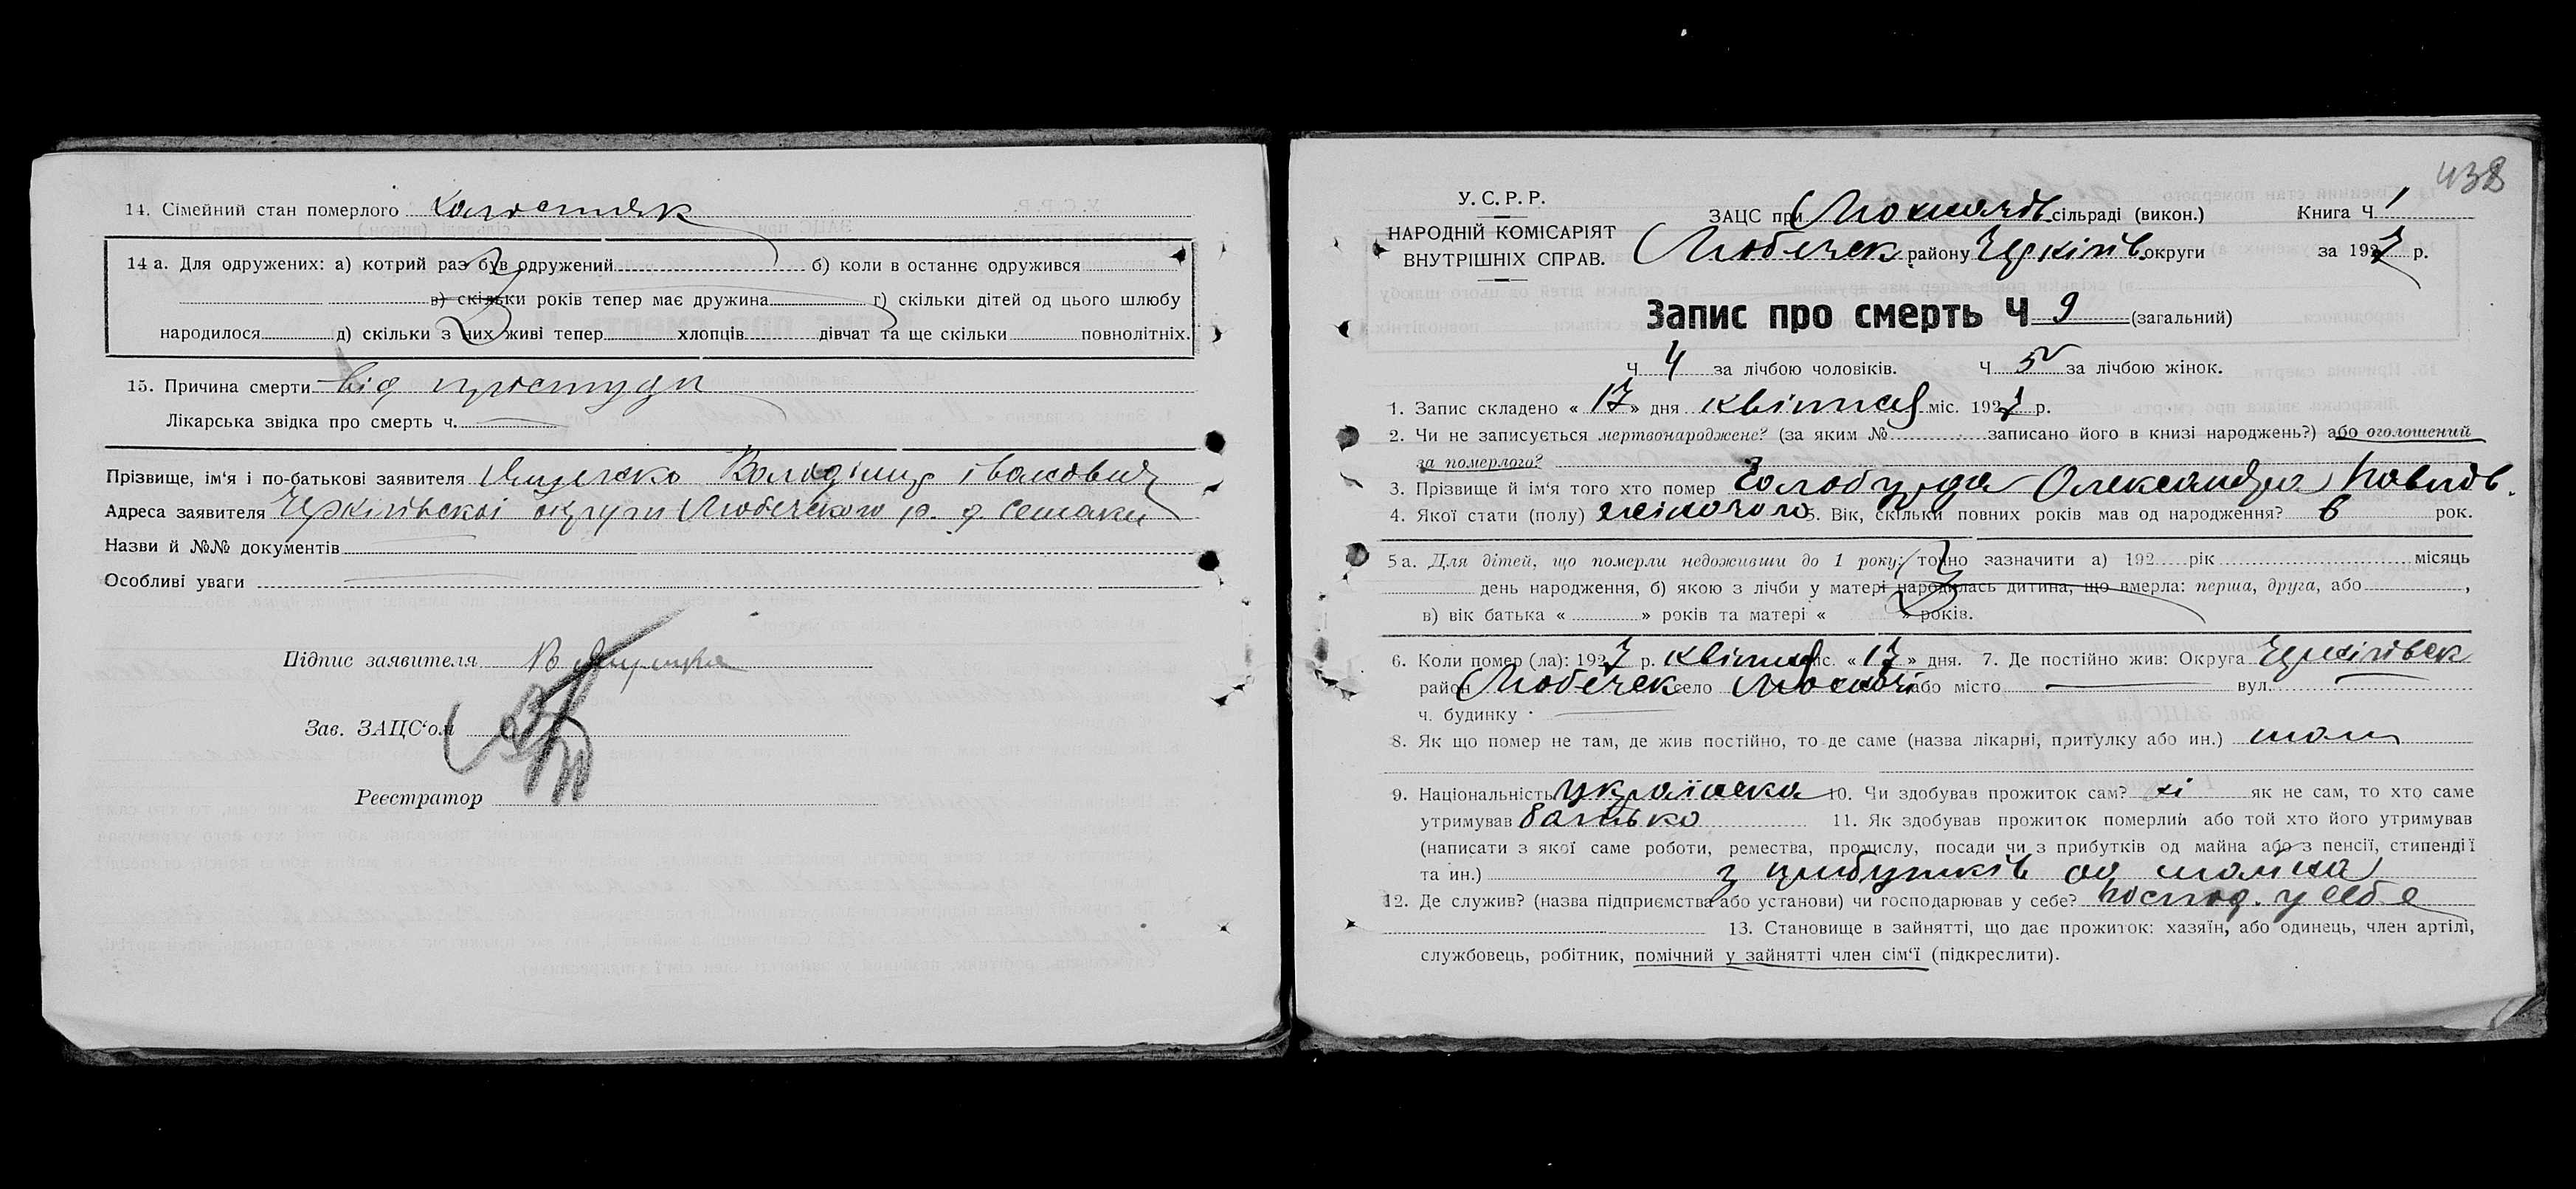 14. Сімейний стан померлого холостяк
14 а. Для одружених: а) котрий раз був одружений б) коли в останнє одружився
в) скільки років тепер має дружина г) скільки дітей од цього шлюбу
народилося д) скільки з них живі тепер хлопців дівчат та ще скільки повнолітніх.
15. Причина смерти від простуди
Лікарська звідка про смерть ч.
Прізвище, ім'я і по-батькові заявителя Володімир Іванович
Адреса заявителя Чернігівскої округи Любечского р. с.
Назви й №№ документів
Особливі уваги
Підпис заявителя
Зав. ЗАЦС'ом
Реєстратор
438
У. С. Р. Р.
НАРОДНІЙ КОМІСАРІЯТ
ВНУТРІШНІХ СПРАВ.
ЗАЦС при сільраді (викон.) Книга Ч 1
Любечек району Чернігів. округи за 1927 р.
Запис про смерть Ч 9 (загальний)
Ч 4 за лічбою чоловіків. Ч 5 за лічбою жінок.
1. Запис складено « 17 » дня квітня міс. 1927 р.
2. Чи не записується мертвонароджене? (за яким № записано його в книзі народжень?) або оголошений
за померлого?
3. Прізвище й ім'я того хто помер Голобурда Олександра Павлов.
4. Якої стати (полу) жіночого 5. Вік, скільки повних років мав од народження? 6 рок.
5 а. Для дітей, що померли недоживши до 1 року: точно зазначити а) 192 рік місяць
день народження, б) якою з лічби у матері народилась дитина, що вмерла: перша, друга, або ,
в) вік батька « » років та матері « » років.
6. Коли помер (ла): 1927 р. квітня міс. « 17 » дня. 7. Де постійно жив: Округа Чернігівск
район Любечек село або місто вул.
ч. будинку
8. Як що помер не там, де жив постійно, то де саме (назва лікарні, притулку або ин.) там
9. Національність українска 10. Чи здобував прожиток сам? ні як не сам, то хто саме
утримував батько 11. Як здобував прожиток померлий або той хто його утримував
(написати з якої саме роботи, ремества, промислу, посади чи з прибутків од майна або з пенсії, стипендії
та ин.) з прибутків од майна
12. Де служив? (назва підприємства або установи) чи господарював у себе? господ. у себе
13. Становище в зайнятті, що дає прожиток: хазяїн, або одинець, член артілі,
службовець, робітник, помічний у зайнятті член сім'ї (підкреслити).